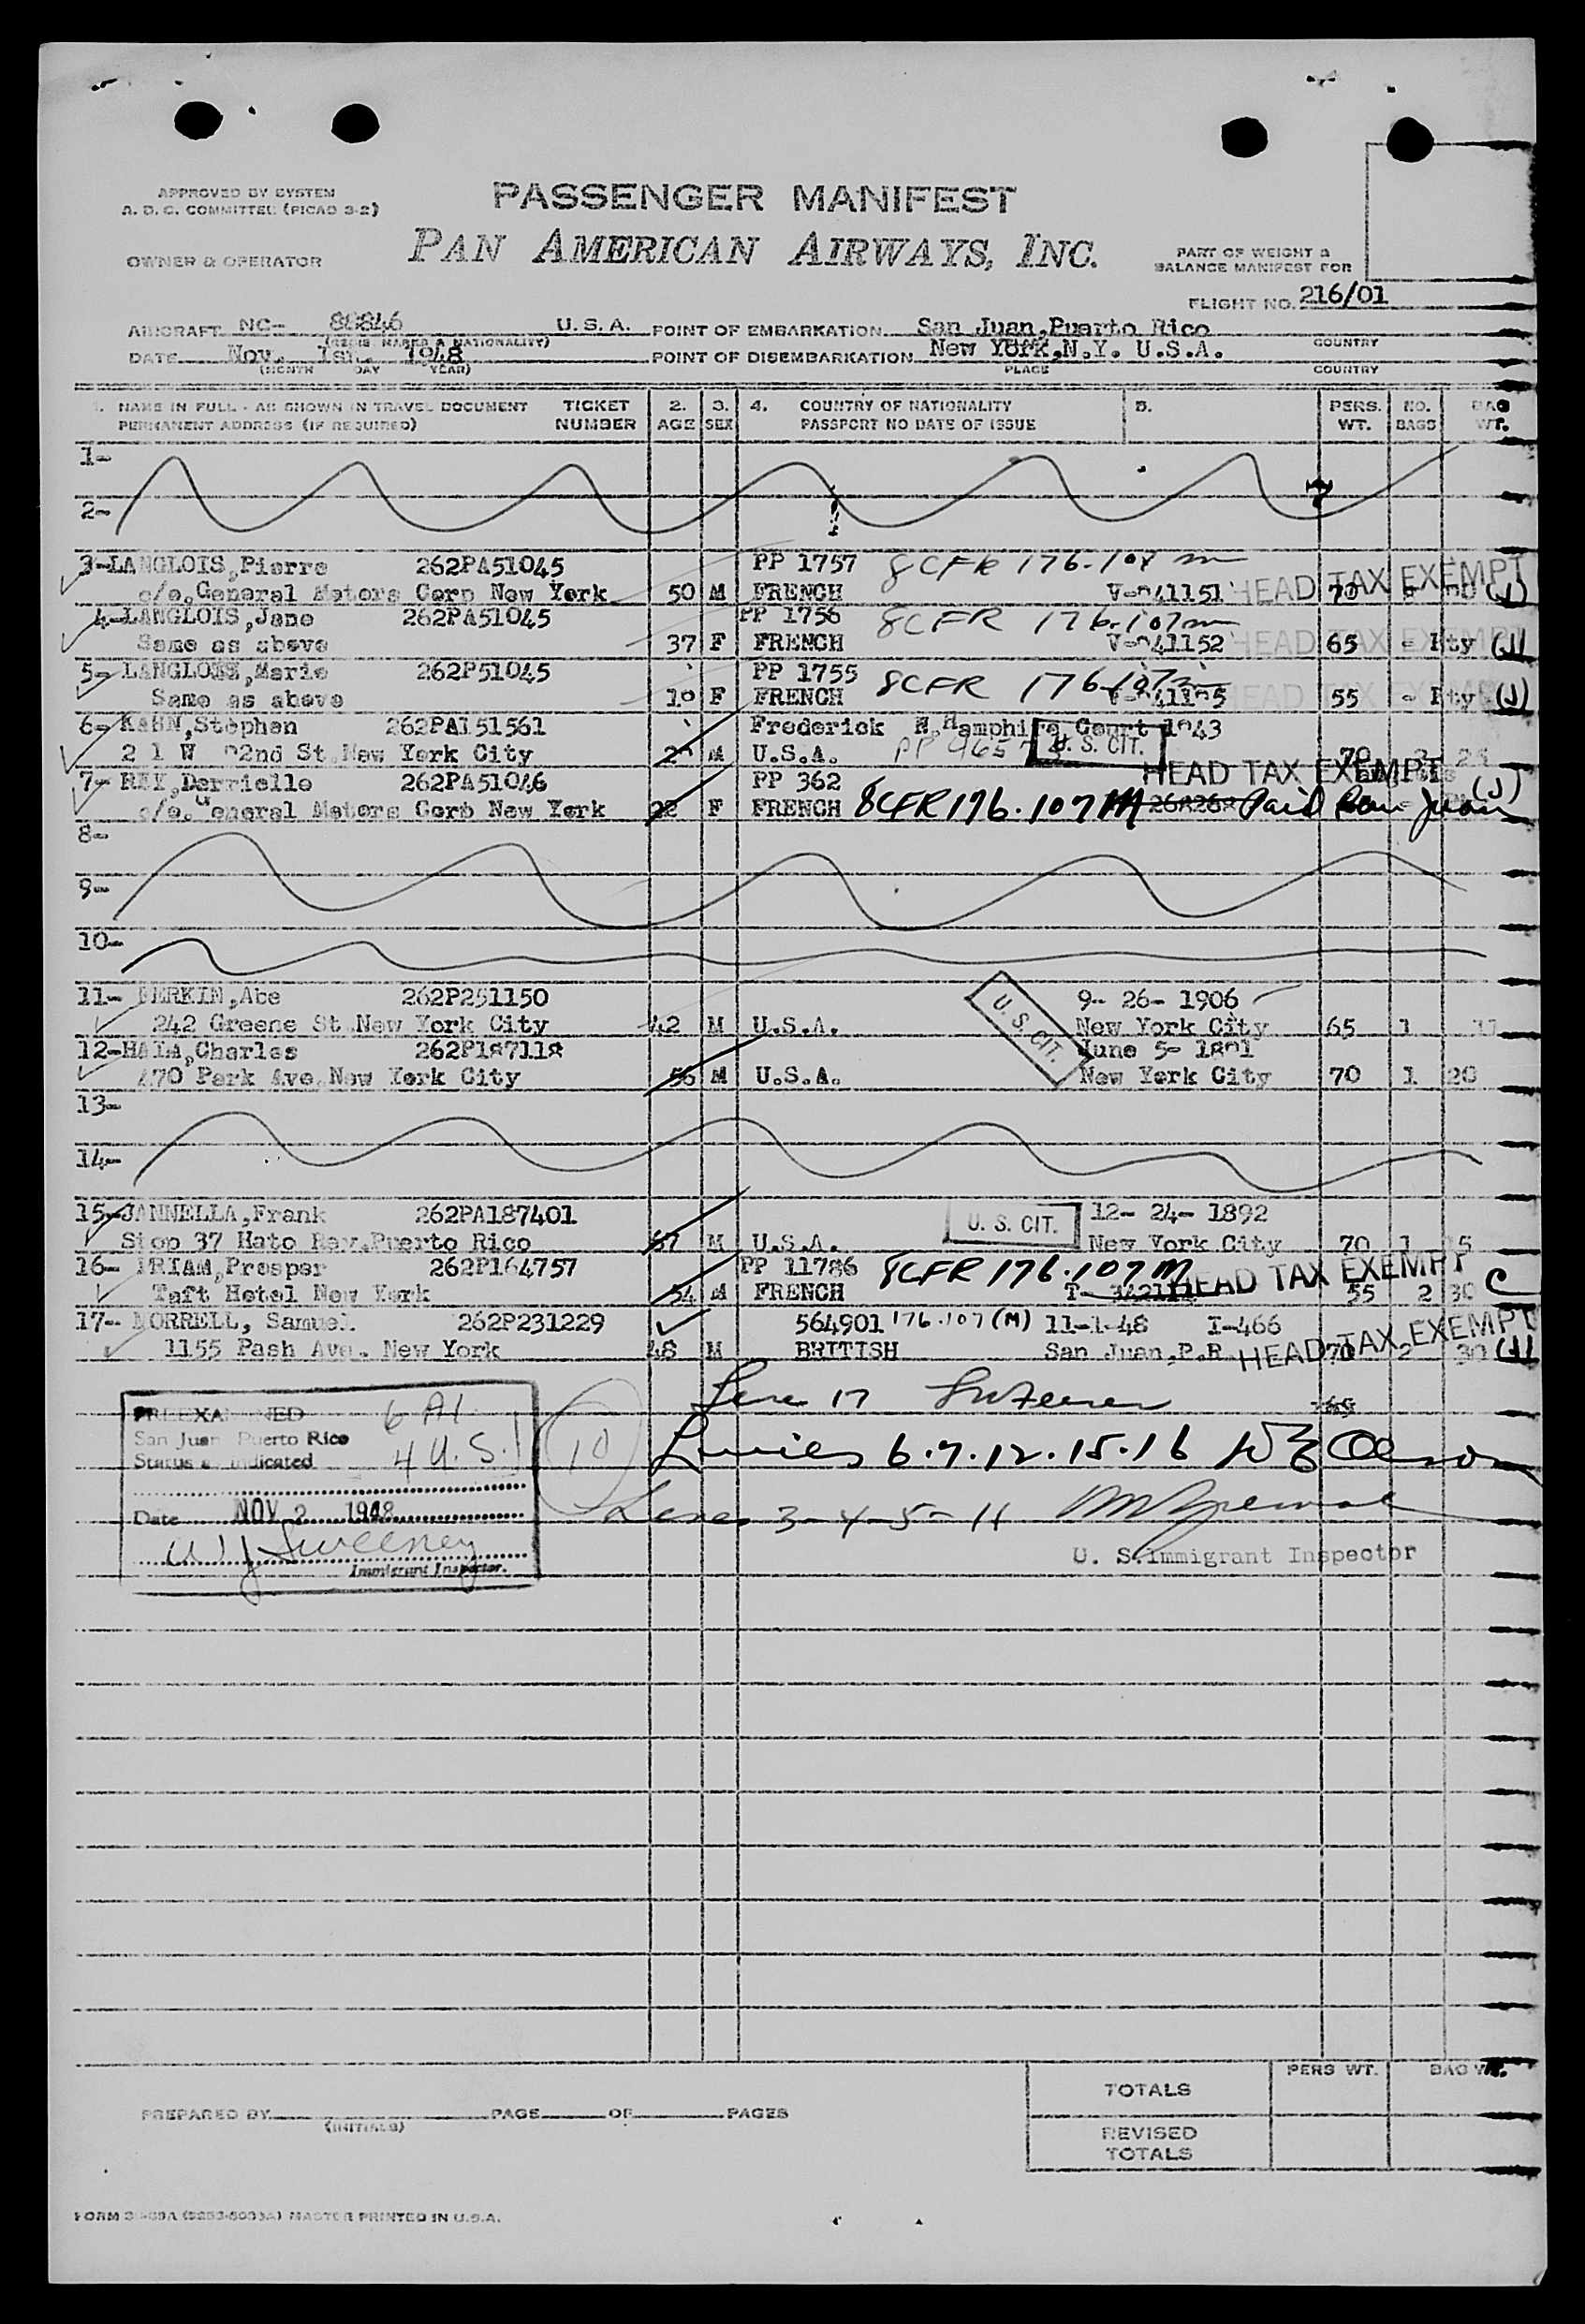 APPROVED BY SYSTEM
A. D. C. COMMITTEE (PICAO 3-2)
PASSENGER MANIFEST
PAN AMERICAN AIRWAYS, INC.
OWNER & OPERATOR
PART OF WEIGHT &
BALANCE MANIFEST FOR
FLIGHT NO. 216/01
AIRCRAFT NC- 88846 U.S.A. POINT OF EMBARKATION San Juan,Puerto Rico
(REGIS MARKS & NATIONALITY) COUNTRY
DATE Nov. 1st. 1948 POINT OF DISEMBARKATION New York,N.Y. U.S.A.
(MONTH DAY YEAR) PLACE COUNTRY
1. NAME IN FULL - AS SHOWN IN TRAVEL DOCUMENT TICKET 2. 3. 4. COUNTRY OF NATIONALITY 5. PERS. NO. BAG
PERMANENT ADDRESS (IF REQUIRED) NUMBER AGE SEX PASSPORT NO DATE OF ISSUE WT. BAGS WT.
1-
2-
3-LANGLOIS,Pierre 262PA51045 PP 1757 8CFR 176.107 m
c/o,General Motors Corp New York 50 M FRENCH V-041151 HEAD TAX EXEMPT 70 (J)
4-LANGLOIS,Jane 262PA51045 PP 1756 8CFR 176.107m
Same as above 37 F FRENCH V-041152 HEAD TAX EXEMPT 65 - Pty (J)
5- LANGLOIS,Marie 262P51045 PP 1755 8CFR 176.107m
Same as above F FRENCH HEAD TAX EXEMPT 55 - Pty (J)
6- KAHN,Stephen 262PA151561 Frederick N.Hamphire Court 1943
W 92nd St.New York City M U.S.A. PP U. S. CIT. 70
7- RAY,Derrielle 262PA51046 PP 362 HEAD TAX EXEMPT (J)
c/o,General Motors Corp New York 22 F FRENCH 8CFR 176.107 M Paid San Juan
8-
9-
10-
11- Abe 262P251150 9- 26- 1906
242 Greene St.New York City 42 M U.S.A. U. S. CIT. New York City 65 1
12-HALA,Charles 262P187118 June 5- 1891
470 Park Ave.New York City 56 M U.S.A. New York City 70 1 20
13-
14-
15-JANNELLA,Frank 262PA187401 U. S. CIT. 12- 24- 1892
Stop 37 Hato Rey,Puerto Rico M U.S.A. New York City 70 1
16- Prosper 262P164757 PP 11786 8CFR 176.107 M HEAD TAX EXEMPT C
Taft Hotel New York 54 M FRENCH 55 2 30
17- MORRELL, Samuel 262P231229 564901 176.107 (M) 11-1-48 I-466
1155 Pash Ave. New York 48 M BRITISH San Juan,P.R. HEAD TAX EXEMPT 70 2 30 (J)
Line 17
PREEXAMINED 6 Al
San Juan Puerto Rico
Status as indicated 4 U.S. 10
Lines 6.7.12.15.16
Date NOV 2 1948
Lines 3-4-5-11
W J Sweeney
Immigrant Inspector.
U. S.Immigrant Inspector
PERS WT. BAG WT.
TOTALS
PREPARED BY PAGE OF PAGES
(INITIALS)
REVISED
TOTALS
MASTER PRINTED IN U.S.A.